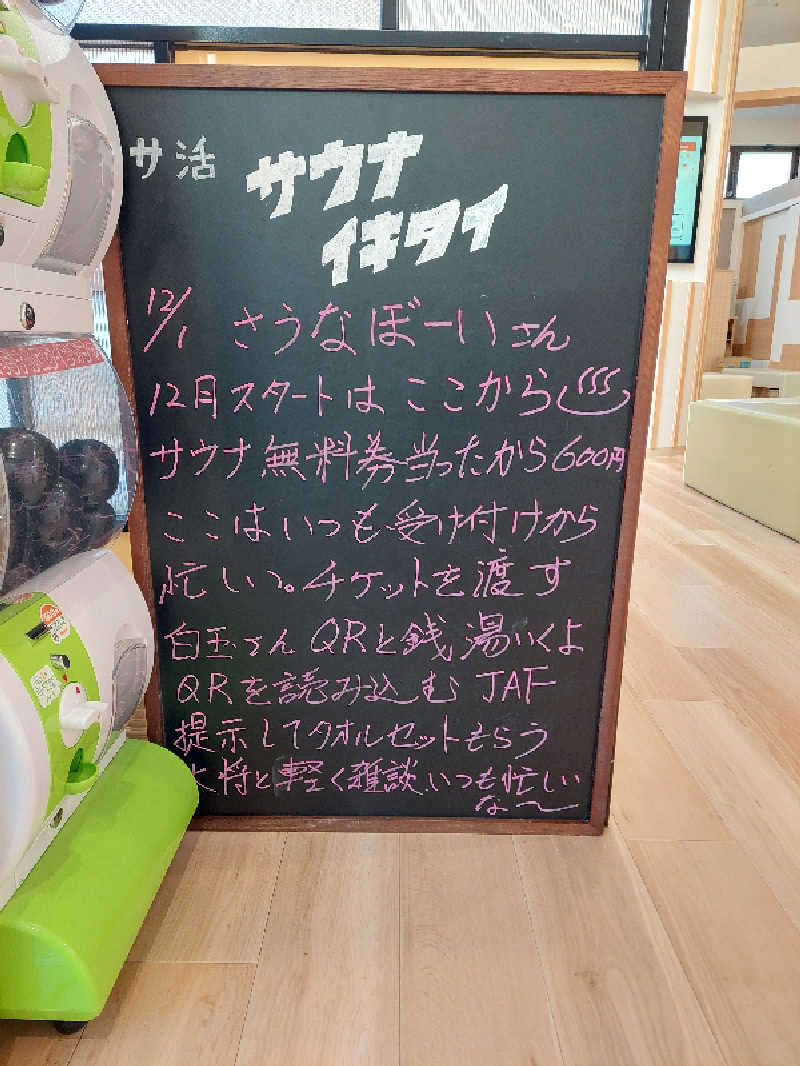 サ活
サウナ
イキタイ
12/1 さうなぼーいさん
12月スタートは ここから
サウナ無料券当ったから600円
ここはいつも受け付けから
忙しい。チケットを渡す
白玉さん QRと銭湯いくよ
QRを読み込む JAF
提示してタオルセットもらう
大将と軽く雑談、いつも忙しい
な〜